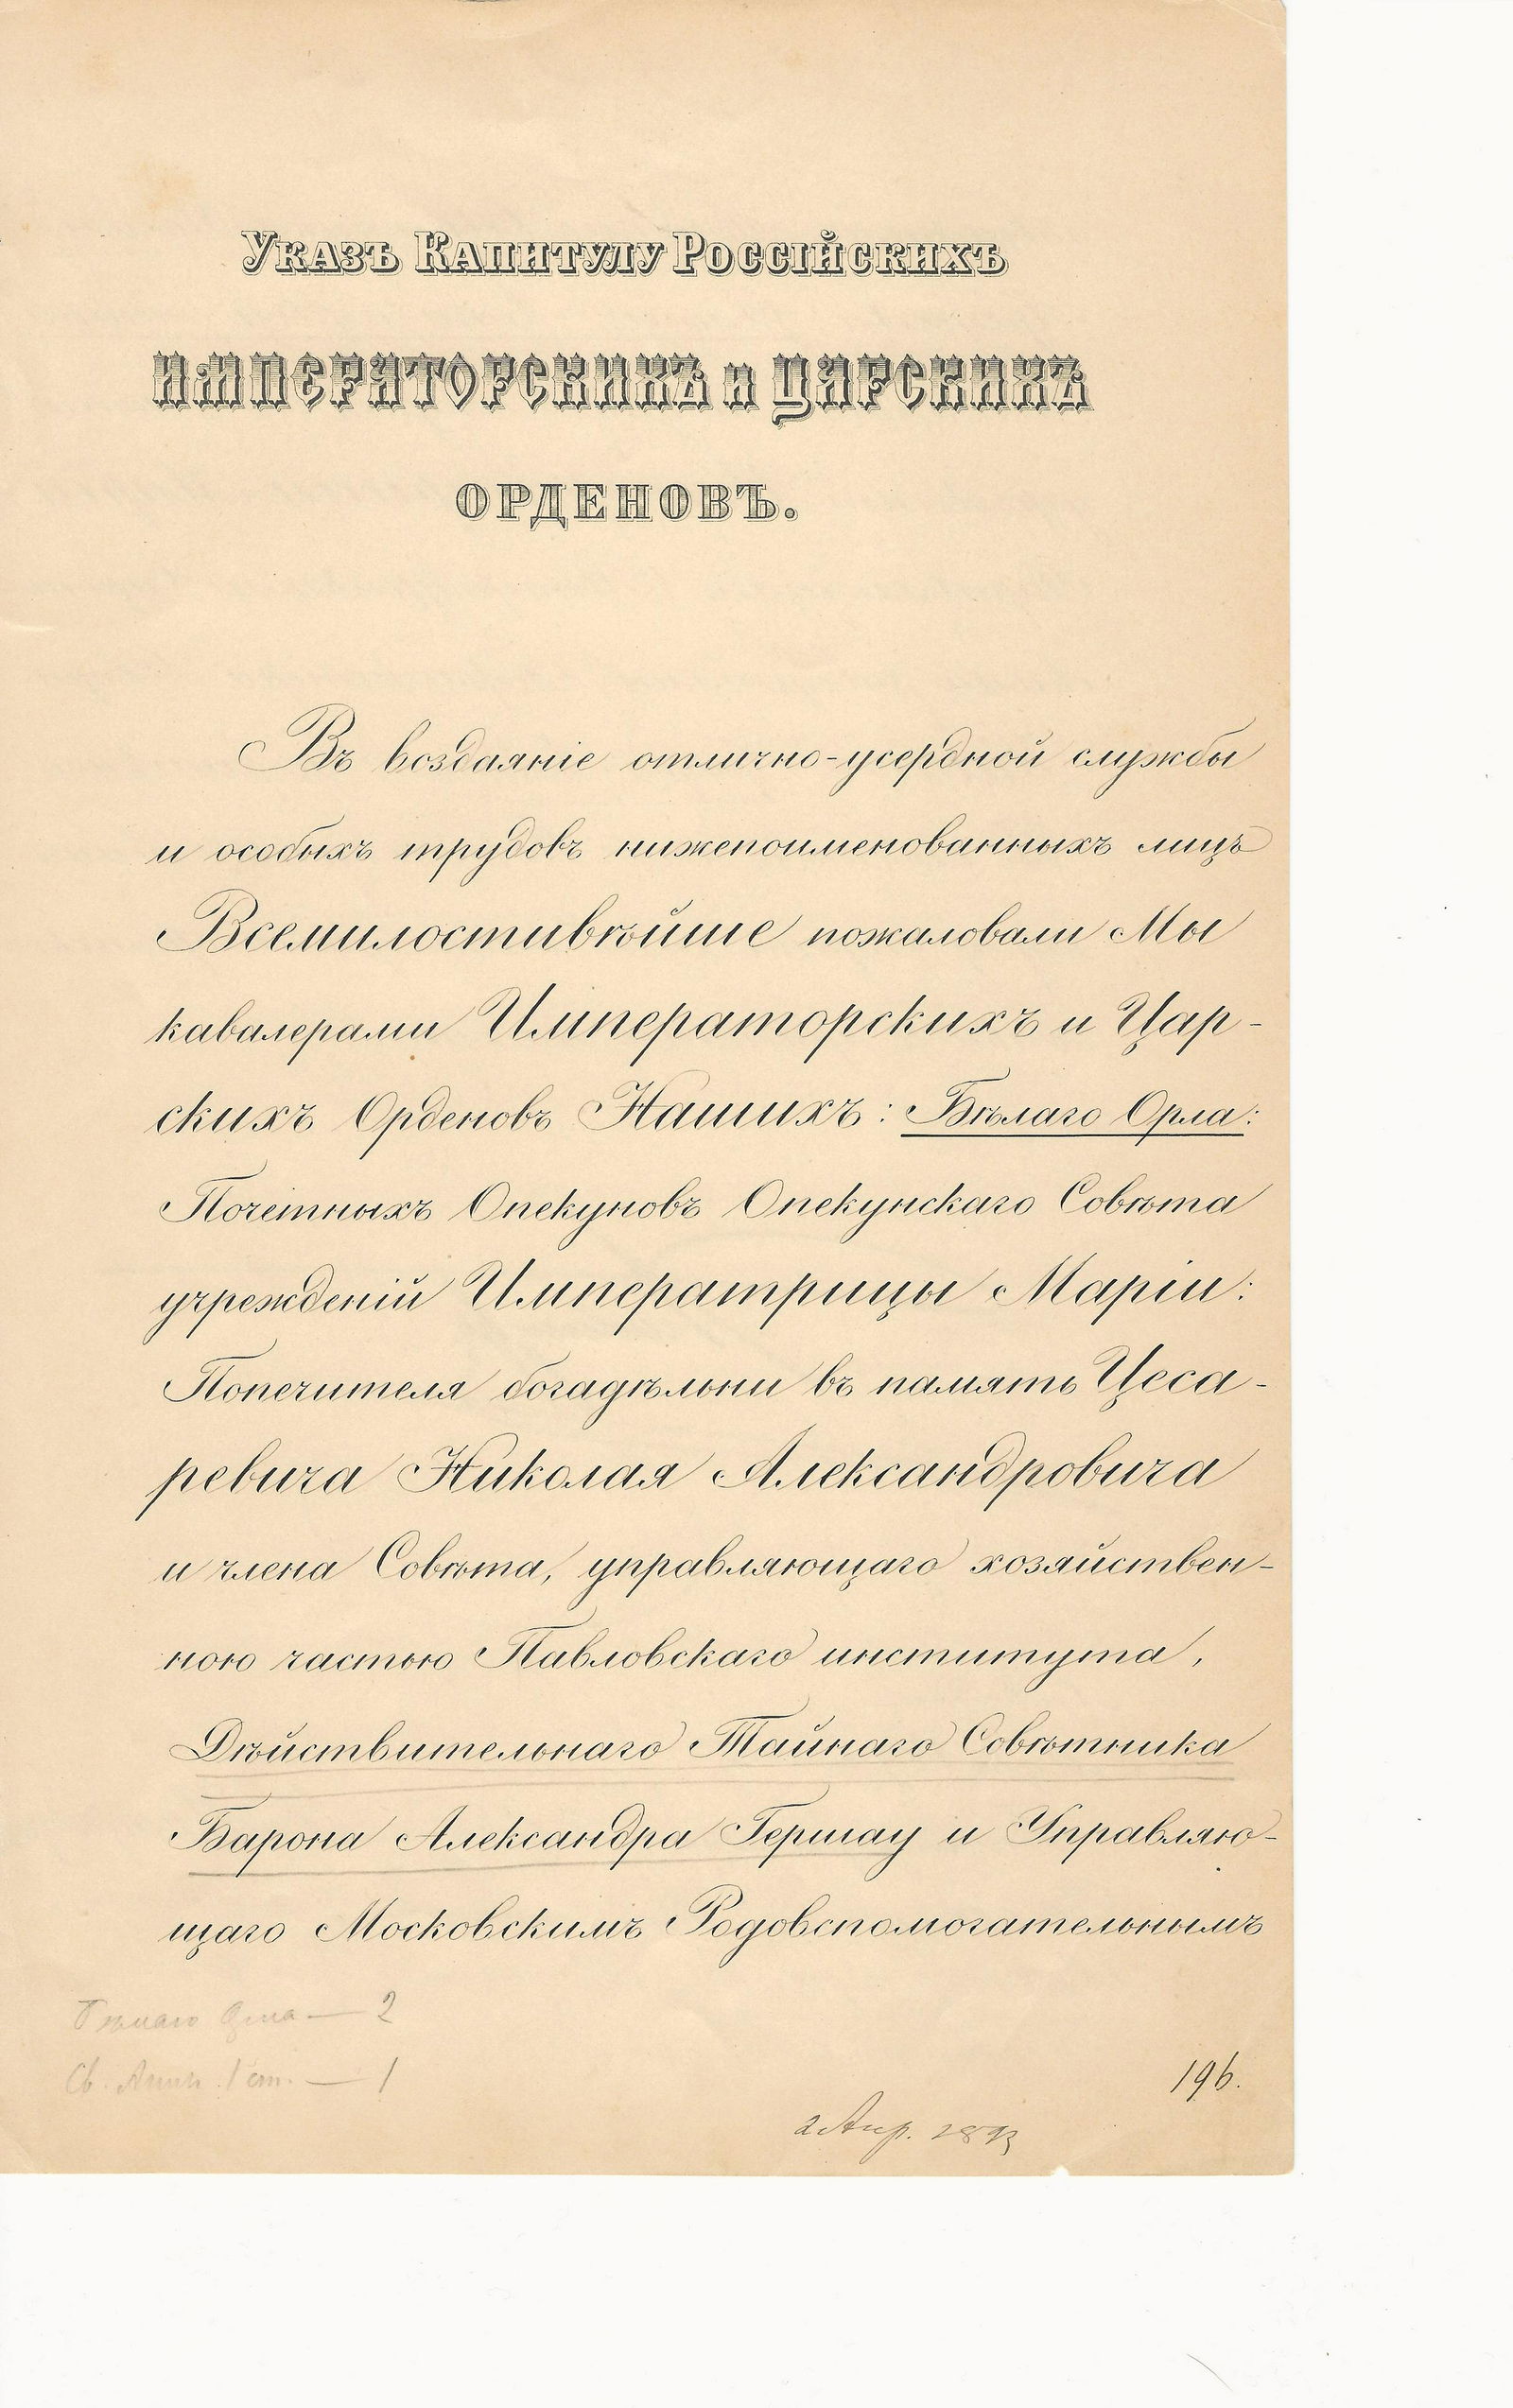 Указъ Капитулу Россійскихъ
ИМПЕРАТОРСКИХЪ и ЦАРСКИХЪ
ОРДЕНОВЪ.
Въ воздаяніе отлично-усердной службы
и особыхъ трудовъ нижепоименованныхъ лицъ
Всемилостивѣйше пожаловали Мы
кавалерами Императорскихъ и Цар-
скихъ Орденовъ Нашихъ: Бѣлаго Орла:
Почетныхъ Опекуновъ Опекунскаго Совѣта
учрежденій Императрицы Маріи:
Попечителя богадѣльни въ память Цеса-
ревича Николая Александровича
и члена Совѣта, управляющаго хозяйствен-
ною частью Павловскаго института,
Дѣйствительнаго Тайнаго Совѣтника
Барона Александра Гершау и Управляю-
щаго Московскимъ Родовспомогательнымъ
Бѣлаго Орла — 2
Св. Анны 1 ст. — 1
196.
2 Апр. 1893